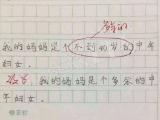 我的妈妈是个不到40岁的中年
妇女。
我的妈妈是个多余的中
年妇女。